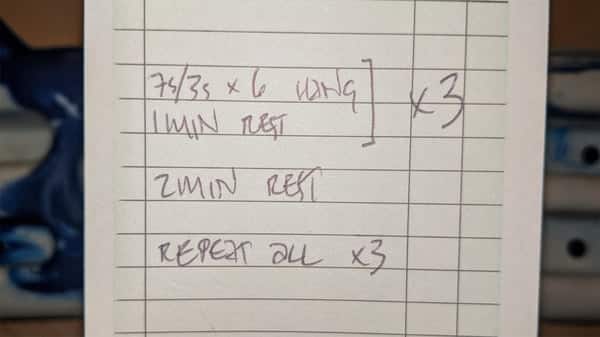 7s/3s x 6 HANG
1 MIN REST ] x3
2 MIN REST
REPEAT ALL x3